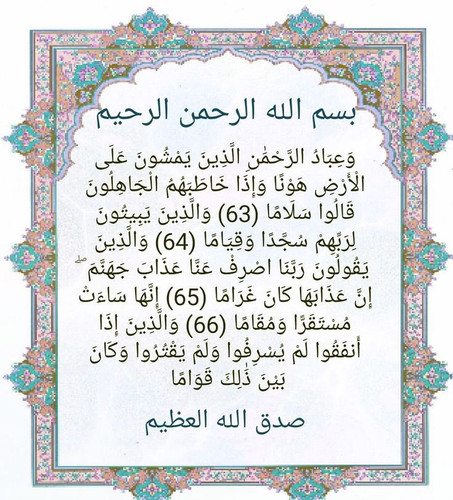 بسم الله الرحمن الرحيم
وَعِبَادُ الرَّحْمَٰنِ الَّذِينَ يَمْشُونَ عَلَى
الْأَرْضِ هَوْنًا وَإِذَا خَاطَبَهُمُ الْجَاهِلُونَ
قَالُوا سَلَامًا (63) وَالَّذِينَ يَبِيتُونَ
لِرَبِّهِمْ سُجَّدًا وَقِيَامًا (64) وَالَّذِينَ
يَقُولُونَ رَبَّنَا اصْرِفْ عَنَّا عَذَابَ جَهَنَّمَ ۖ
إِنَّ عَذَابَهَا كَانَ غَرَامًا (65) إِنَّهَا سَاءَتْ
مُسْتَقَرًّا وَمُقَامًا (66) وَالَّذِينَ إِذَا
أَنفَقُوا لَمْ يُسْرِفُوا وَلَمْ يَقْتُرُوا وَكَانَ
بَيْنَ ذَٰلِكَ قَوَامًا
صدق الله العظيم